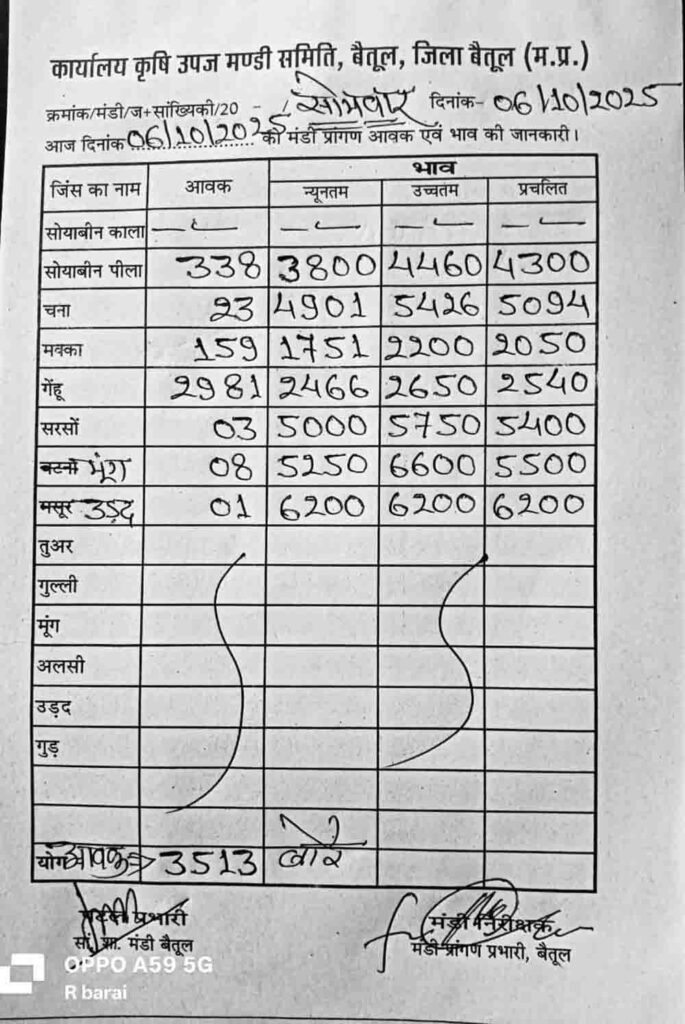 कार्यालय कृषि उपज मण्डी समिति, बैतूल, जिला बैतूल (म.प्र.)
क्रमांक/मंडी/ज+सांख्यिकी/20 - सोमवार दिनांक- 06/10/2025
आज दिनांक 06/10/2025 की मंडी प्रांगण आवक एवं भाव की जानकारी।
जिंस का नाम आवक भाव
न्यूनतम उच्चतम प्रचलित
सोयाबीन काला - - - -
सोयाबीन पीला 338 3800 4460 4300
चना 23 4901 5426 5094
मक्का 159 1751 2200 2050
गेंहू 2981 2466 2650 2540
सरसों 03 5000 5750 5400
बटना मूंग 08 5250 6600 5500
मसूर उड़द 01 6200 6200 6200
तुअर
गुल्ली
मूंग
अलसी
उड़द
गुड़
योग आवक 3513 बोरे
प्रभारी मंडी निरीक्षक
सां. शा. मंडी बैतूल मंडी प्रांगण प्रभारी, बैतूल
OPPO A59 5G
R barai